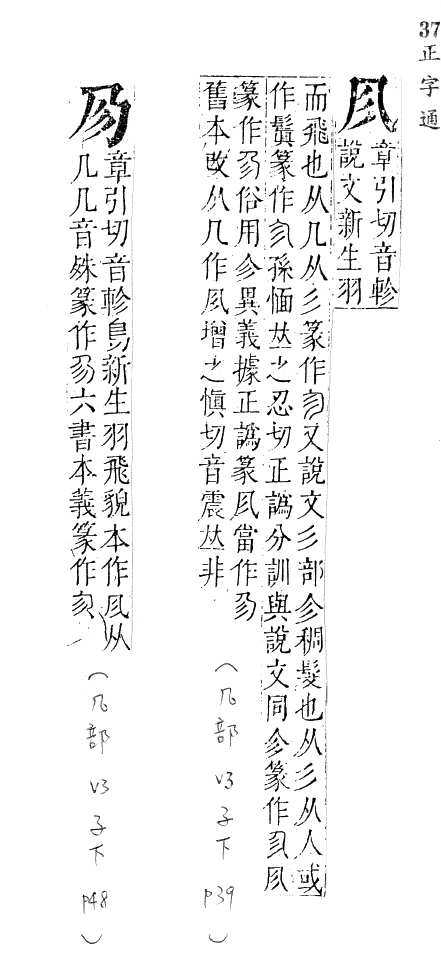 37
正字通
凨
章引切音軫
說文新生羽
而飛也从几从彡篆作㐱又說文彡部㐱稠髮也从彡从人或
作鬒篆作 孫愐 之忍切正譌分訓與說文同㐱篆作
篆作 俗用㐱異義據正譌篆 當作
舊本改从几作 增之慎切音震 非
章引切音軫鳥新生羽飛貌本作 从
几几音殊篆作 六書本義篆作
(几部 V3 子下 P39)
(几部 V3 子下 P48)